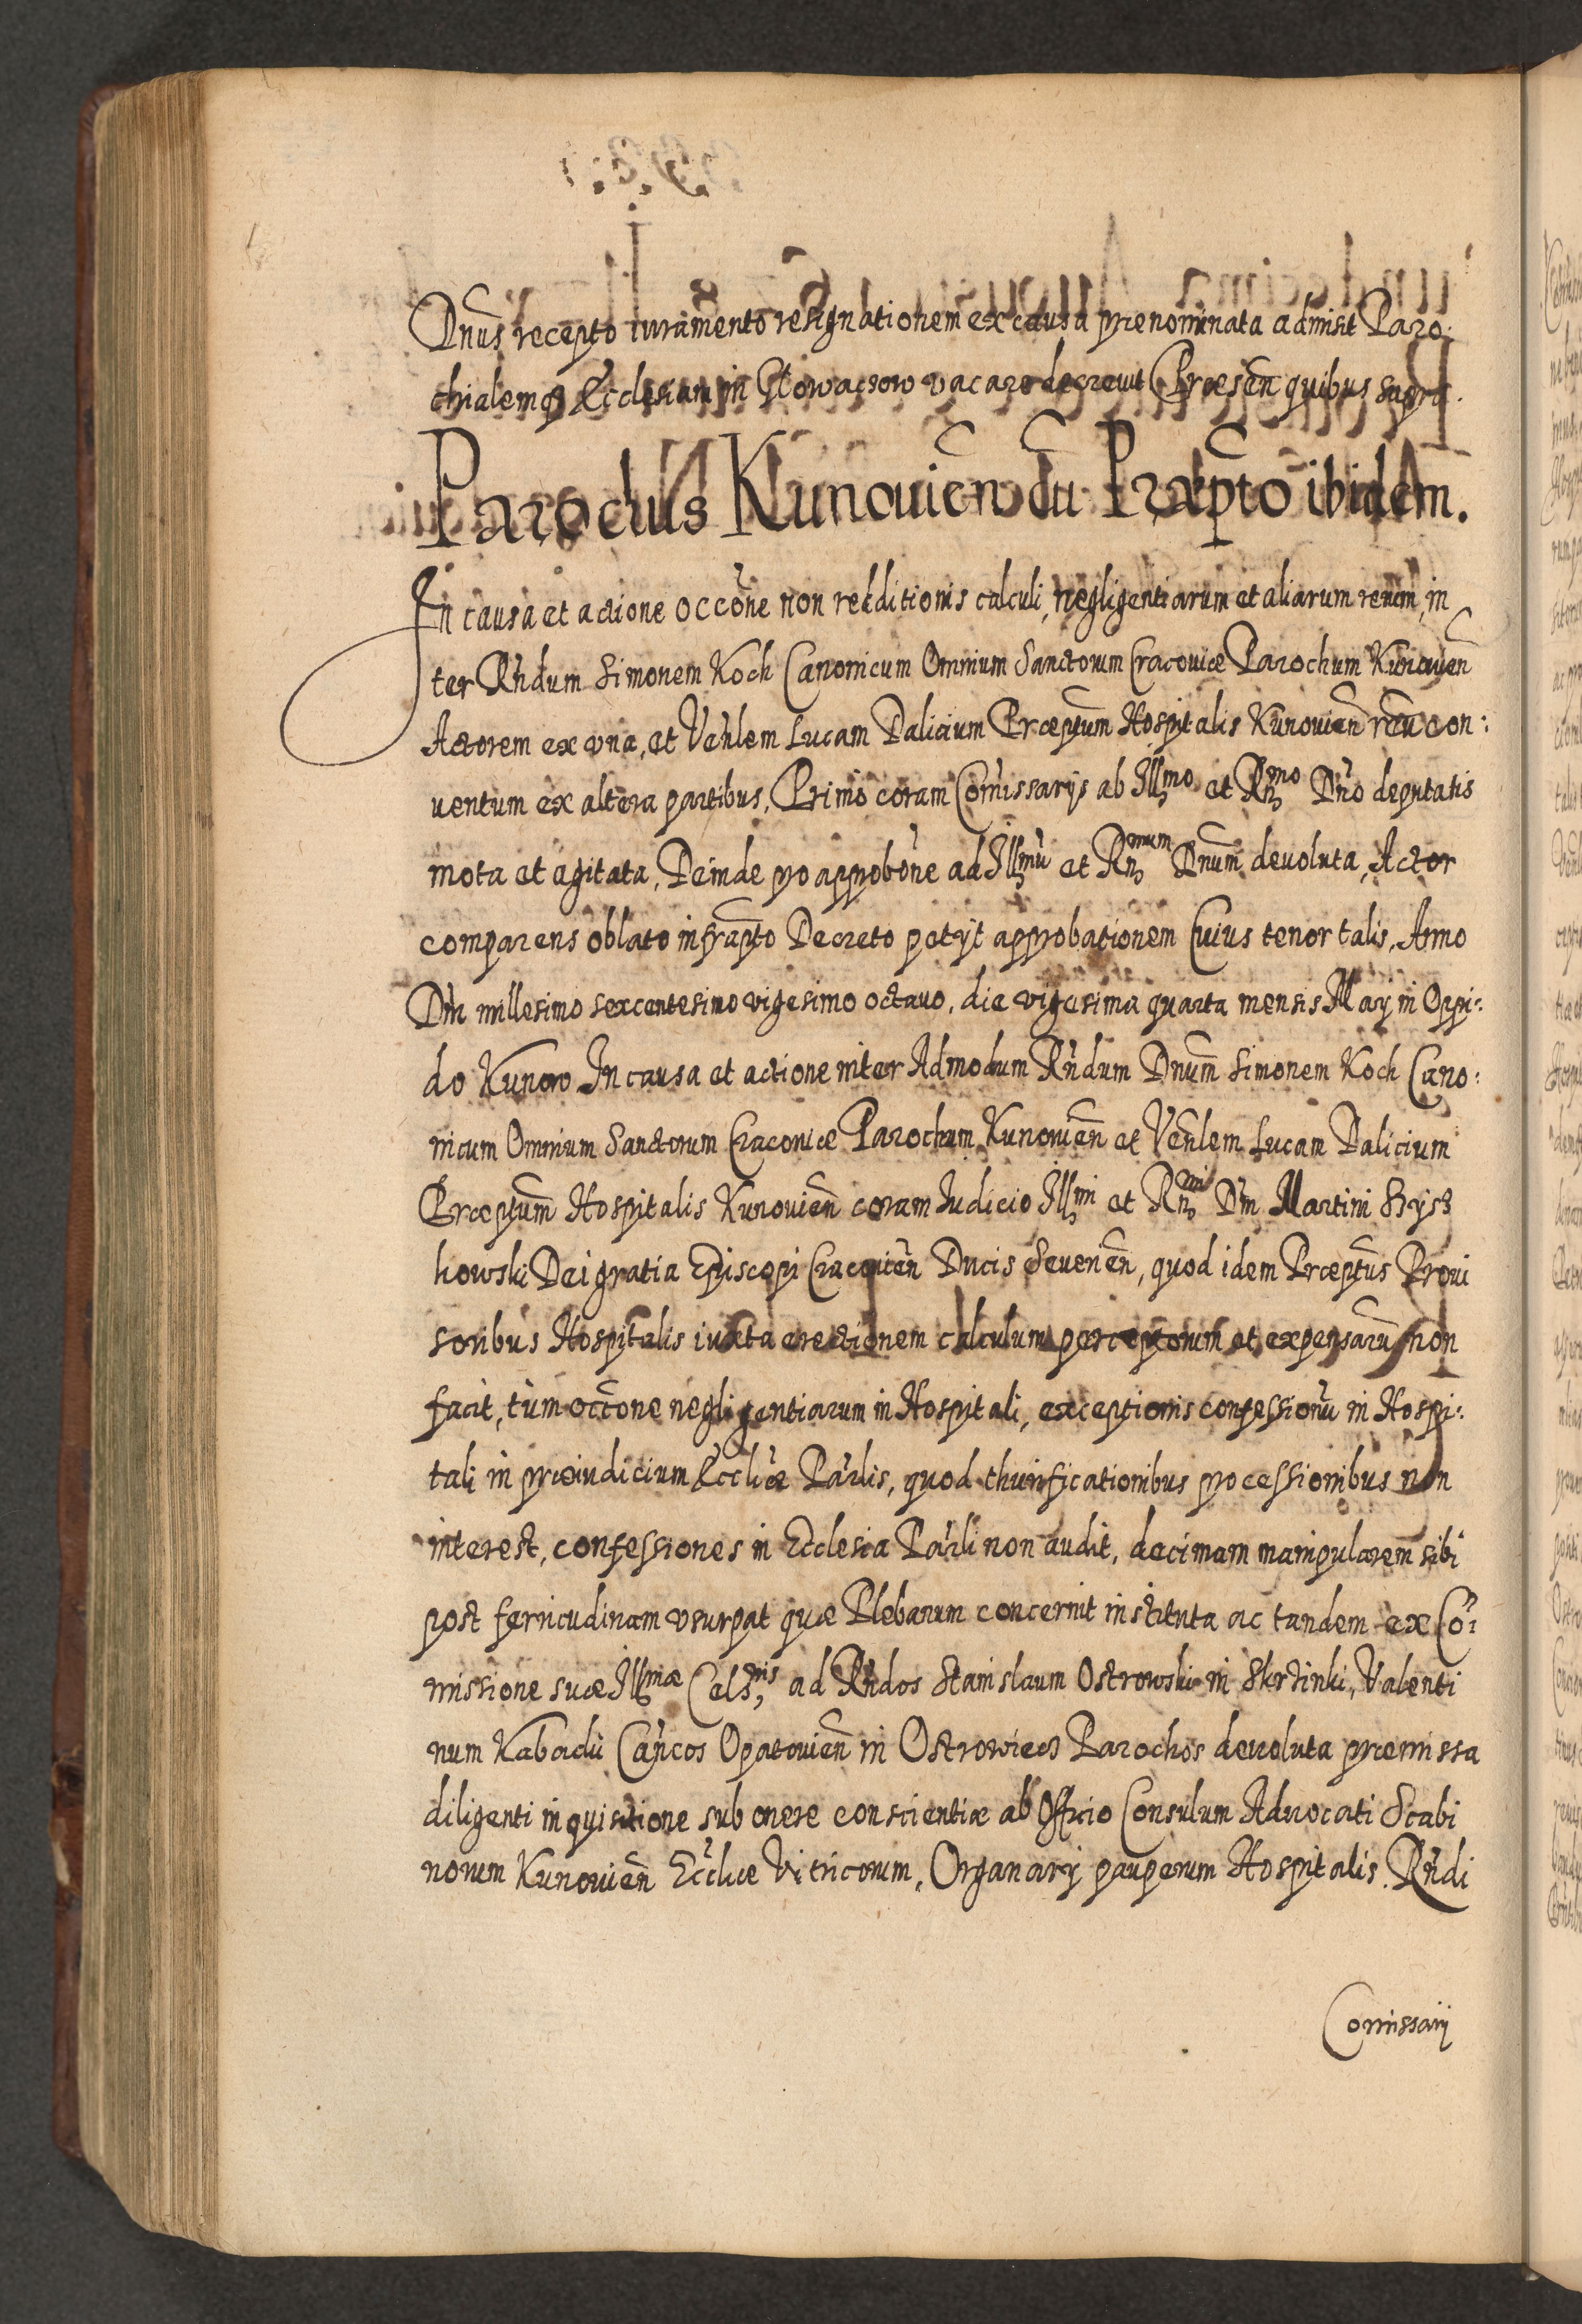 Dnus recepto iuramento resignationem ex causa prænominata admisit Paro:
chialemq Ecclesiam in Glowaczow vacare decreuit Præsen̄ quibus supra.
Parochus Kunouien̄ cū Præpto ibidem.
In causa et actione occōne non redditionis calculi, negligentiarum et aliarum rerum, in
ter Rndum Simonem Koch Canonicum Omnium Sanctorum Cracouiæ Parochum Kunouien̄
Actorem ex vna, et Venlem Lucam Palicium Præptum Hospitalis Kunouien̄ reū con:
uentum ex altera partibus, Primo coram Com̄issarijs ab Illmo et Rn̄mo Dn̄o deputatis
mota et agitata, Deinde pro approbōne ad Illmū et Rn̄mum Dnum deuoluta, Actor
comparens oblato infrapto Decreto petijt approbationem Cuius tenor talis, Anno
Dni millesimo sexcentesimo vigesimo octauo, die vigesima quarta mensis Maij in Oppi:
do Kunow In causa et actione inter Admodum Rndum Dnum Simonem Koch Cano:
nicum Omnium Sanctorum Cracouiæ Parochum Kunouien̄ et Venlem Lucam Palicium
Præptum Hospitalis Kunouien̄ coram Iudicio Illmi et Rn̄mi Dni Martini Szysz
kowski Dei gratia Episcopi Cracouien̄ Ducis Seuerien̄, quod idem Præptus Proui
soribus Hospitalis iuxta erectionem calculum perceptorum et expensarū non
facit, tùm occōne negligentiarum in Hospitali, exceptionis confessionū in Hospi:
tali in præiudicium Eccliæ Parlis, quod thurificationibus processionibus non
interest, confessiones in Ecclesia Parli non audit, decimam manipularem sibi
post fernicudinam vsurpat quæ Plebanum concernit instituta ac tandem ex Co:
missione suæ Illmæ Celsnis ad Rndos Stanislaum Ostrowski in Skrzinki, Valenti
num Kabadii Cancos Opatouien̄ in Ostrowiecz Parochos deuoluta præmissa
diligenti inquisitione sub onere conscientiæ ab Officio Consulum Aduocati Scabi
norum Kunouien̄ Eccliæ Vitricorum, Organarij pauperum Hospitalis. Rndi
Comissarij